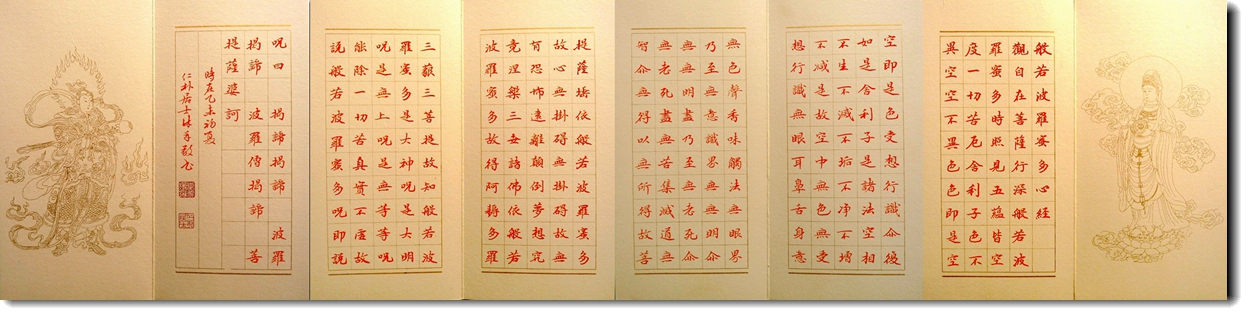 般若波羅蜜多心經
觀自在菩薩行深般若波
羅蜜多時照見五蘊皆空
度一切苦厄舍利子色不
異空空不異色色即是空
空即是色受想行識亦復
如是舍利子是諸法空相
不生不滅不垢不净不增
不減是故空中無色無受
想行識無眼耳鼻舌身意
無色聲香味觸法無眼界
乃至無意識界無無明亦
無無明盡乃至無老死亦
無老死盡無苦集滅道無
智亦無得以無所得故菩
提薩埵依般若波羅蜜多
故心無掛碍無掛碍故無
有恐怖遠離顛倒夢想究
竟涅槃三世諸佛依般若
波羅蜜多故得阿耨多羅
三藐三菩提故知般若波
羅蜜多是大神呪是大明
呪是無上呪是無等等呪
能除一切苦真實不虛故
說般若波羅蜜多呪即說
呪曰 揭諦揭諦 波羅
揭諦 波羅僧揭諦 菩
提薩婆訶
時在乙未初夏
仁朴居士沐手敬書